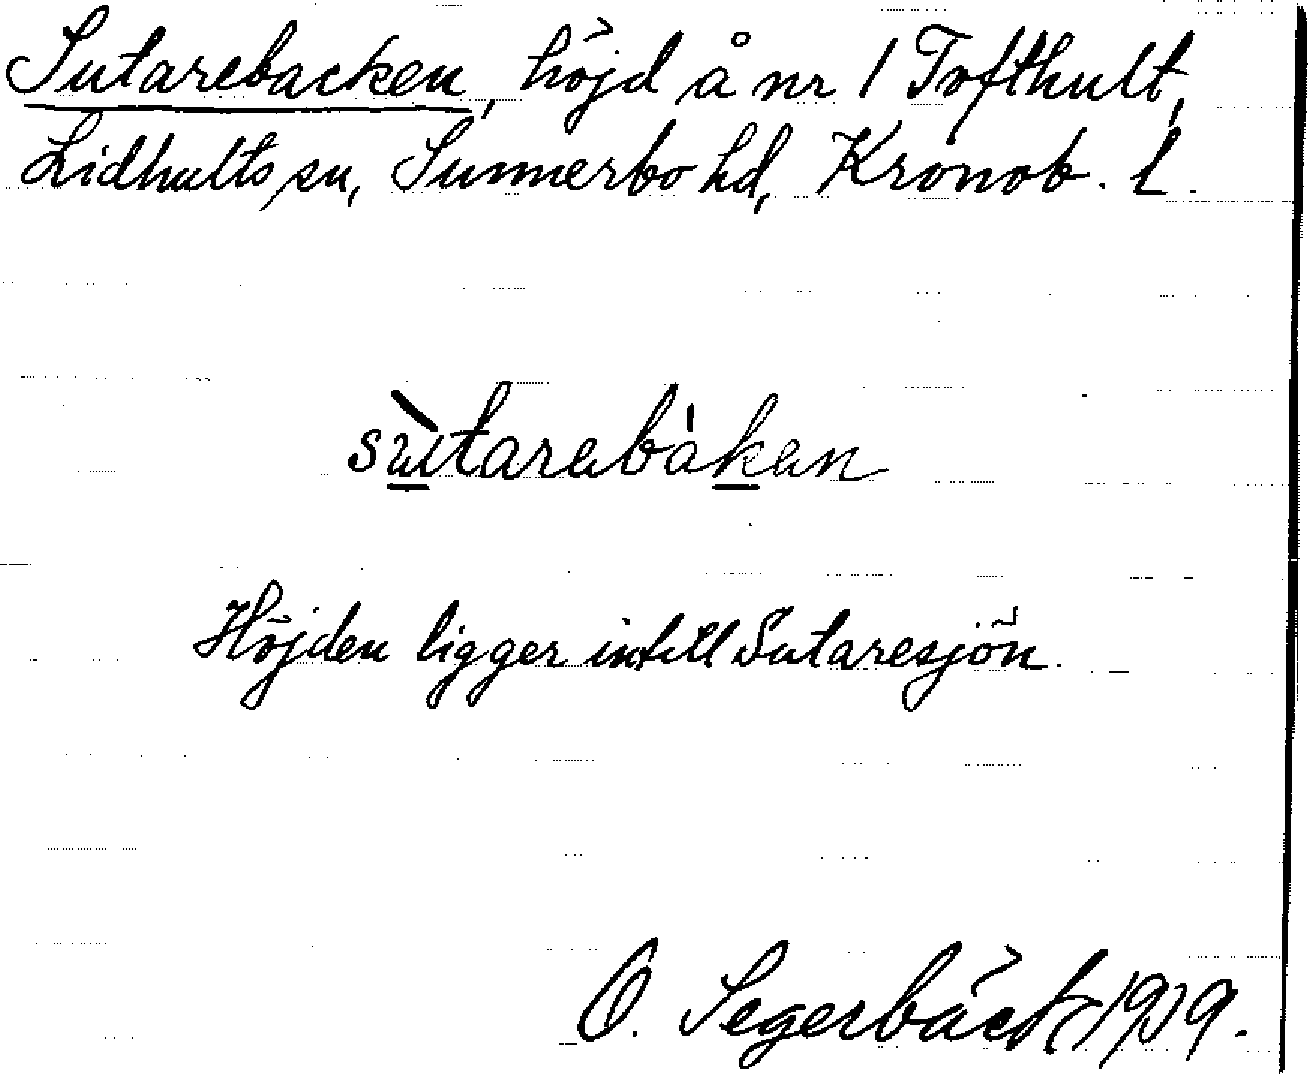 Sutarebacken, höjd å nr 1 Tofthult,
Lidhults sn, Sunnerbo hd, Kronob. l.
sùtarebàkan
Höjden ligger intill Sutaresjön.
O. Segerbäck 1919.